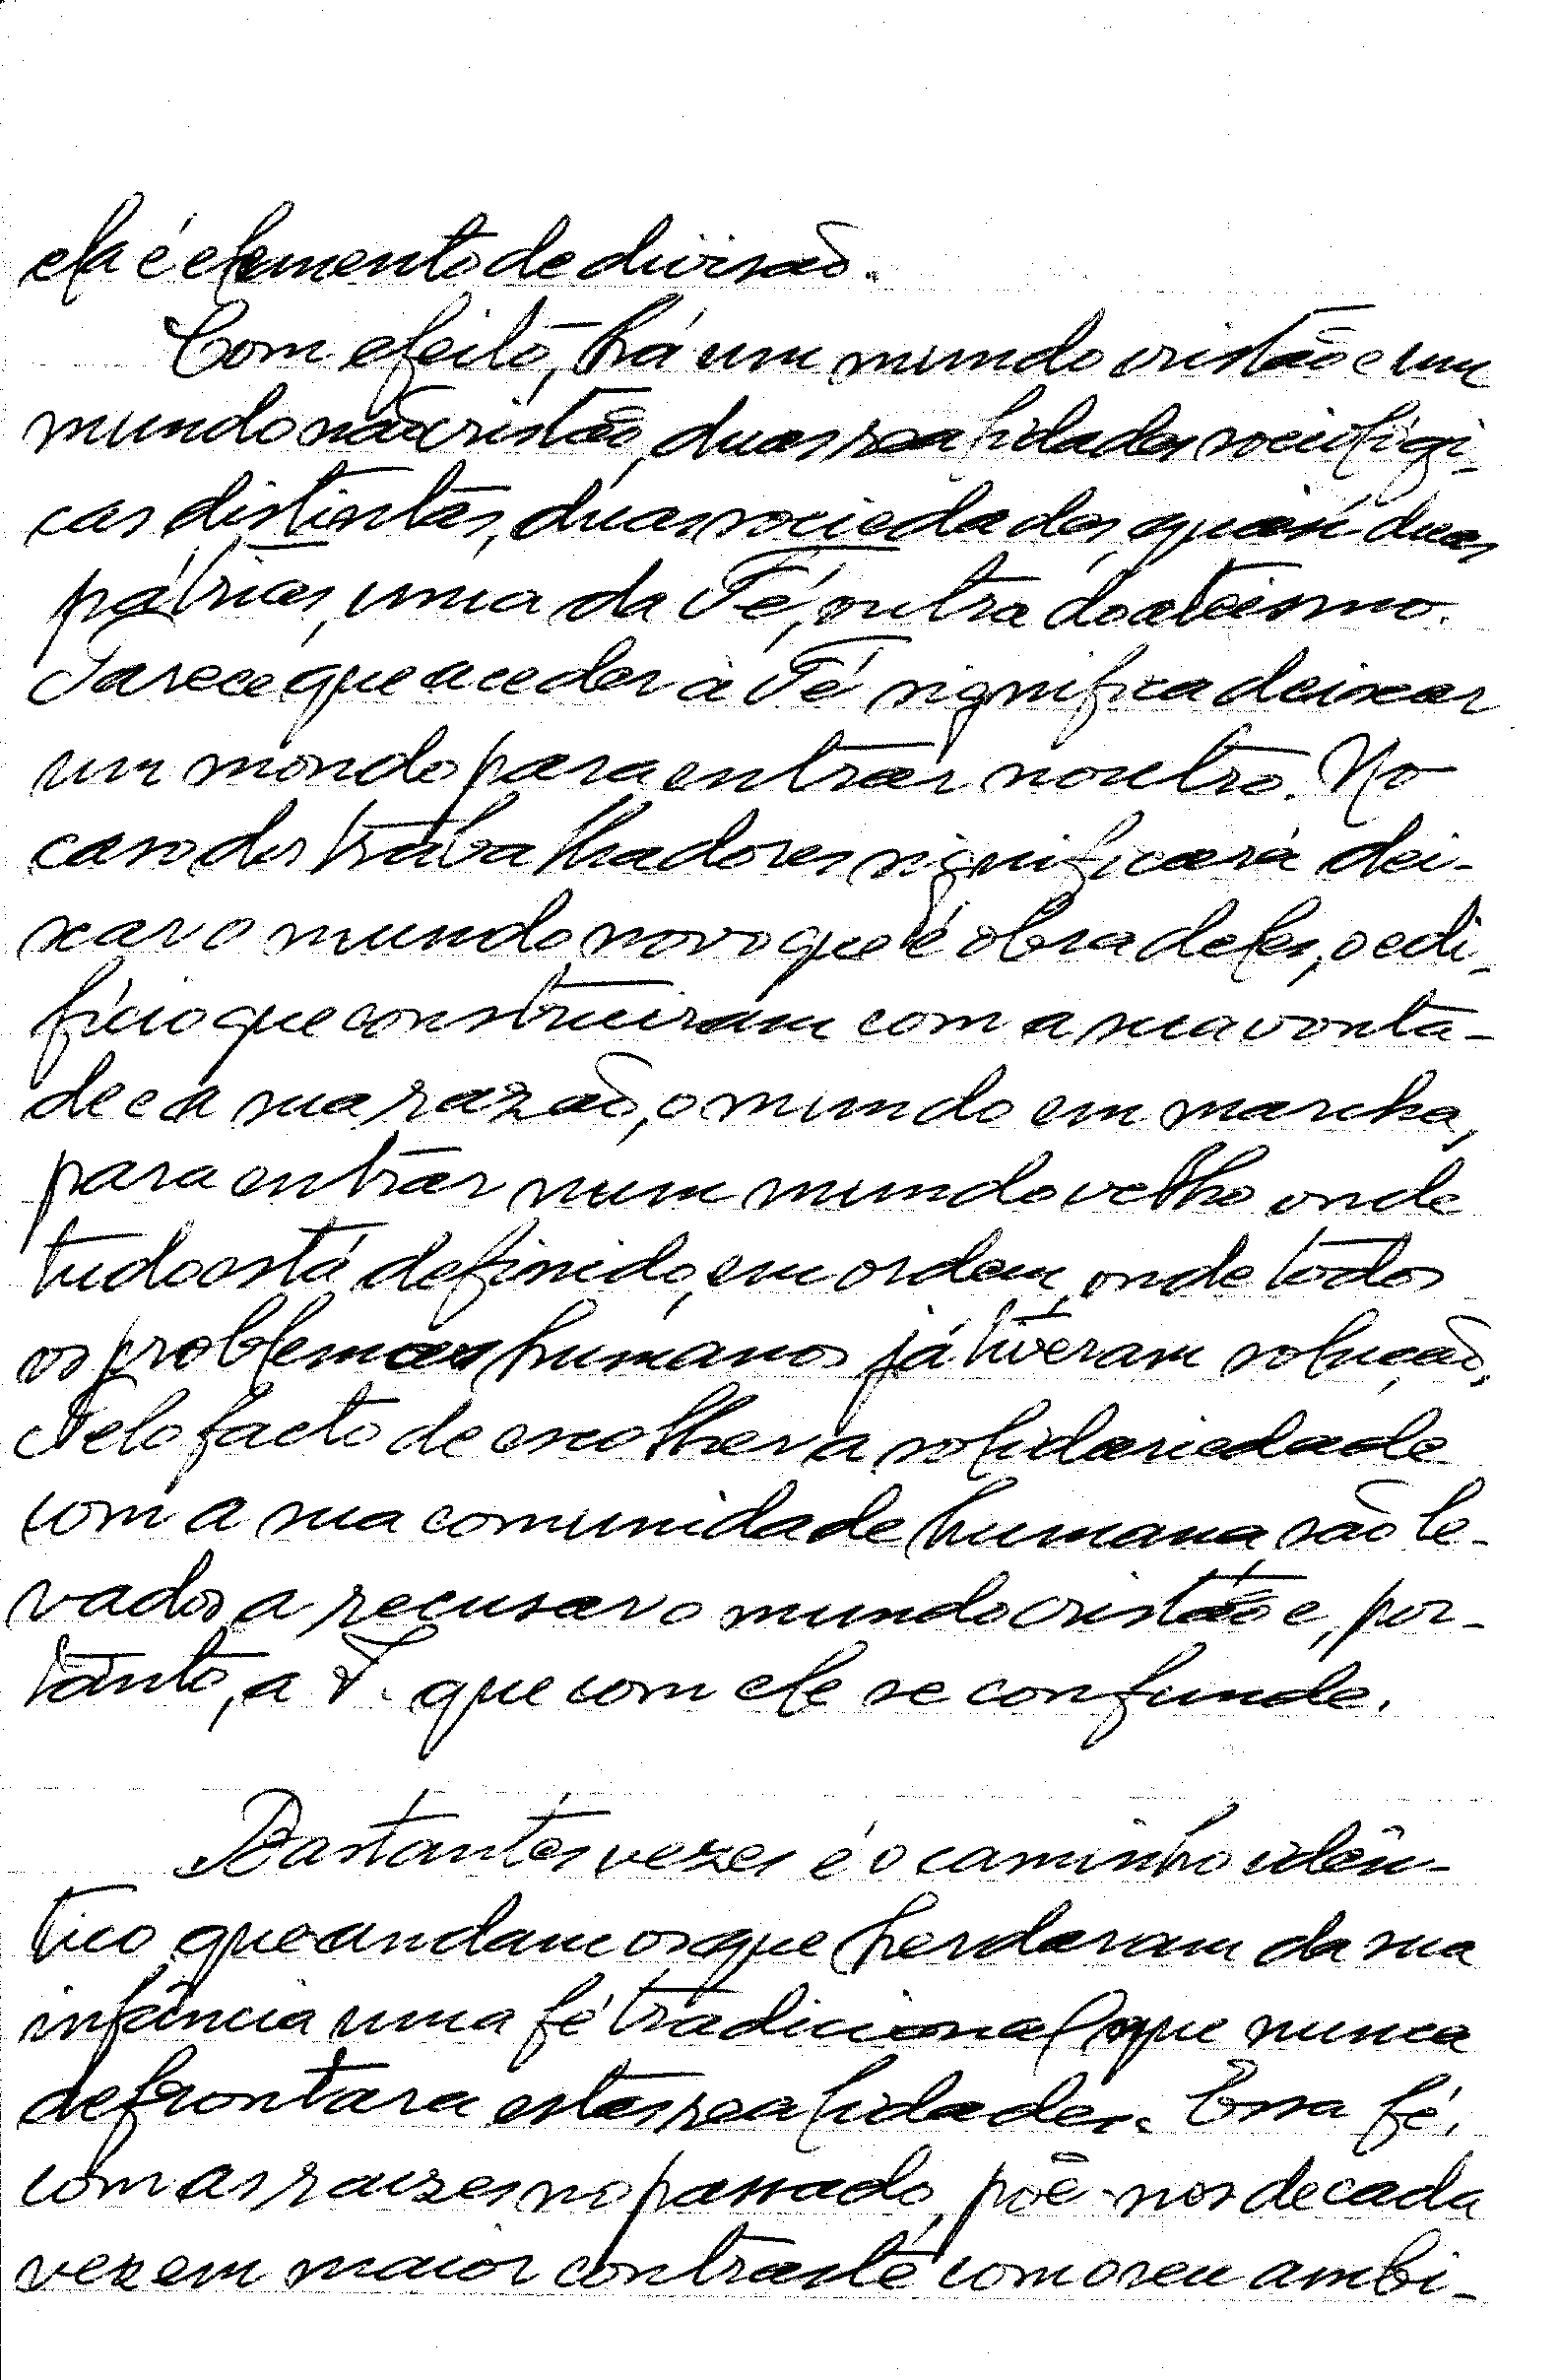 ela é elemento de divisão.
Com efeito, há um mundo cristão e um
mundo não cristão, duas realidades sociológi-
cas distintas, duas sociedades, quási duas
pátrias, uma da Fé, outra do ateismo.
Parece que aceder à Fé significa deixar
um mondo para entrar noutro. No
caso dos trabalhadores significará dei-
xar o mundo novo que é obra deles, o edi-
fício que construiram com a sua vonta-
de e a sua razão, o mundo em marcha,
para entrar num mundo velho onde
tudo está definido, em ordem, onde todos
os problemas humanos já tiveram solução.
Pelo facto de escolher a solidariedade
com a sua comunidade humana, são le-
vados a recusar o mundo cristão e, por-
tanto, a F. que com ele se confunde.
Bastantes vezes é o caminho idên-
tico, que andam os que herdaram da sua
infância uma fé tradicional que nunca
defrontara estas realidades. Essa fé,
com as raizes no passado, põe-nos de cada
vez em maior contraste com o seu ambi-